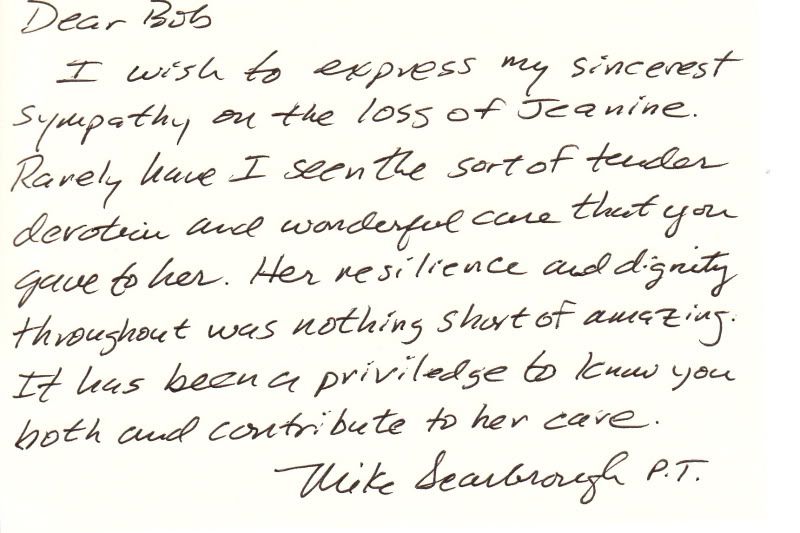 Dear Bob
I wish to express my sincerest
sympathy on the loss of Jeanine.
Rarely have I seen the sort of tender
devotion and wonderful care that you
gave to her. Her resilience and dignity
throughout was nothing short of amazing.
It has been a priviledge to know you
both and contribute to her care.
Mike Searbrough P.T.